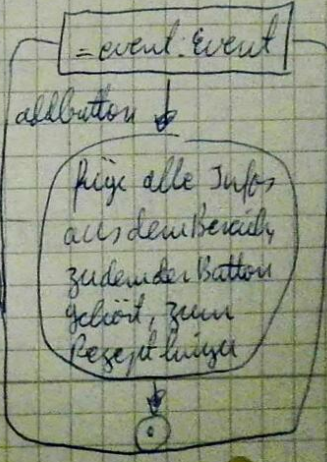 = event: Event
addbutton
füge alle Infos
aus dem Bereich,
zu dem der Button
gehört, zum
Rezept hinzu